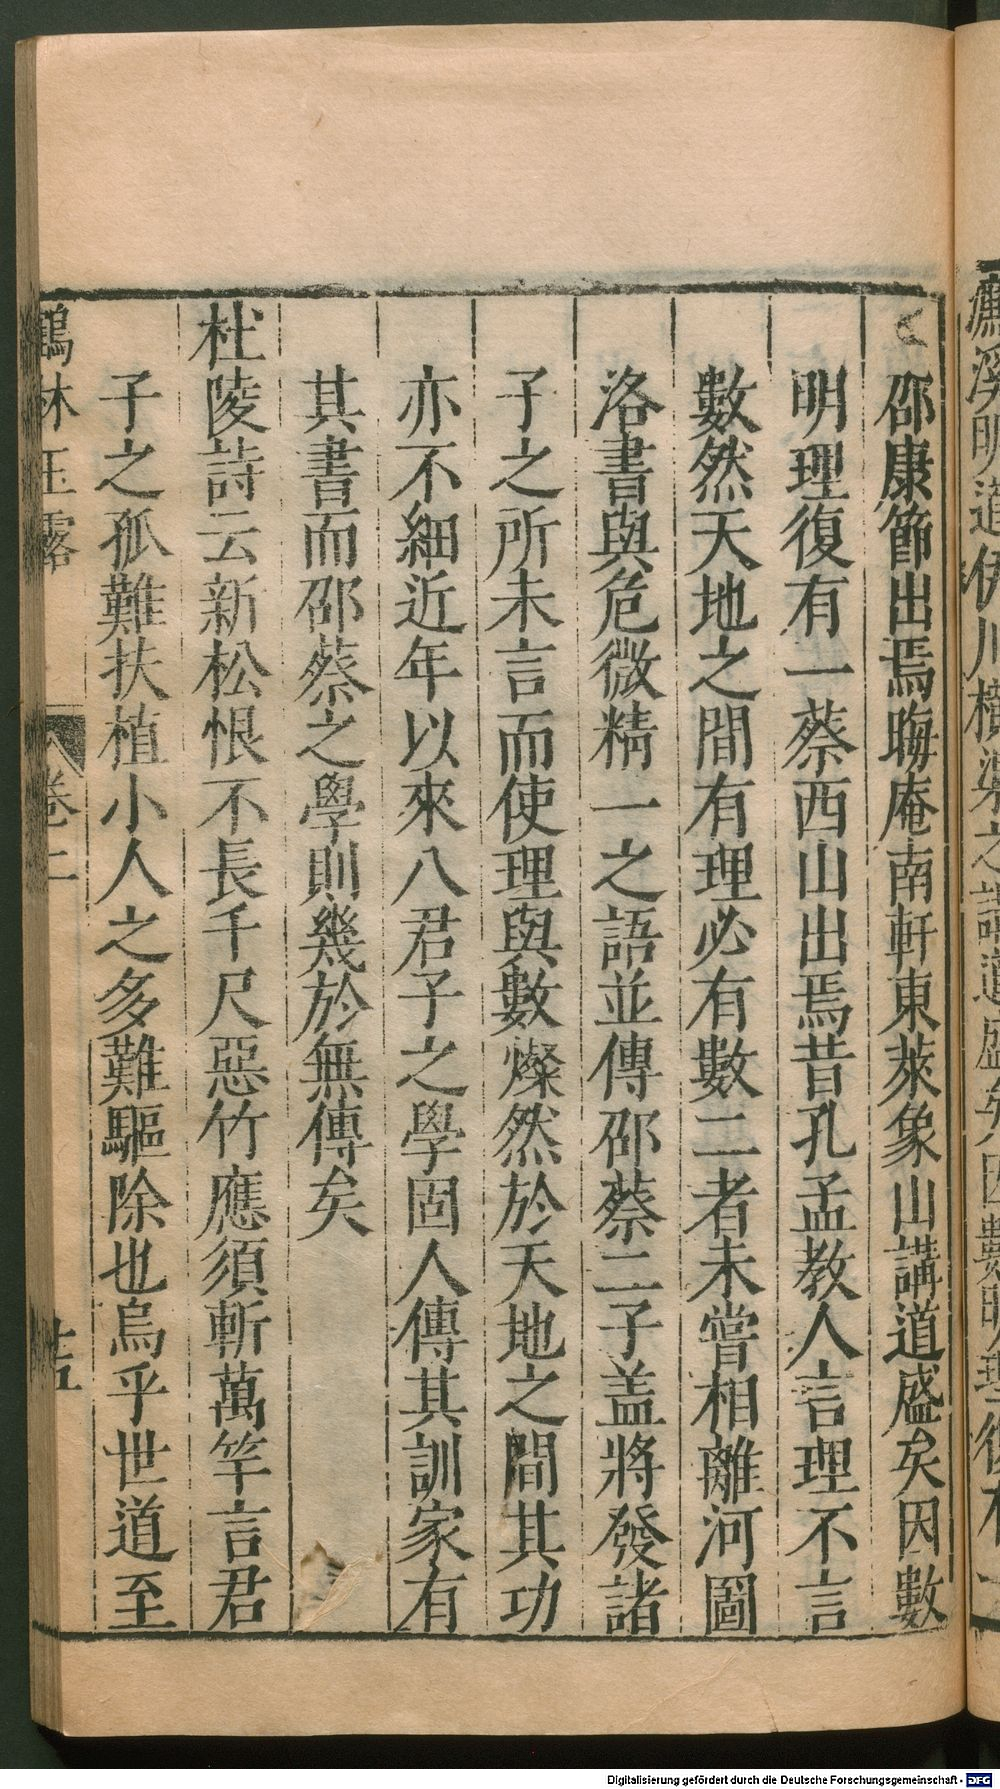 濂溪明道伊川橫渠之講道盛矣因數明理復有一
邵康節出焉晦庵南軒東萊象山講道盛矣因數
明理復有一蔡西山出焉昔孔孟教人言理不言
數然天地之間有理必有數二者未嘗相離河圖
洛書與危微精一之語並傳邵蔡二子盖將發諸
子之所未言而使理與數燦然於天地之間其功
亦不細近年以來八君子之學固人傳其訓家有
其書而邵蔡之學則幾於無傳矣
杜陵詩云新松恨不長千尺惡竹應須斬萬竿言君
子之孤難扶植小人之多難驅除也烏乎世道至
鶴林玉露 卷二
Digitalisierung gefördert durch die Deutsche Forschungsgemeinschaft - DFG